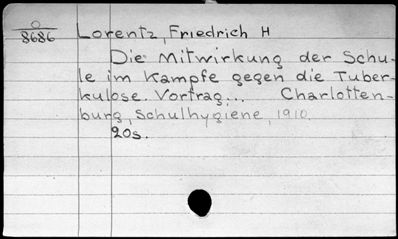 O
8686
Lorentz, Friedrich H
Die Mitwirkung der Schu-
le im Kampfe gegen die Tuber-
kulose. Vortrag... Charlotten-
burg, Schulhygiene, 1910.
20s.